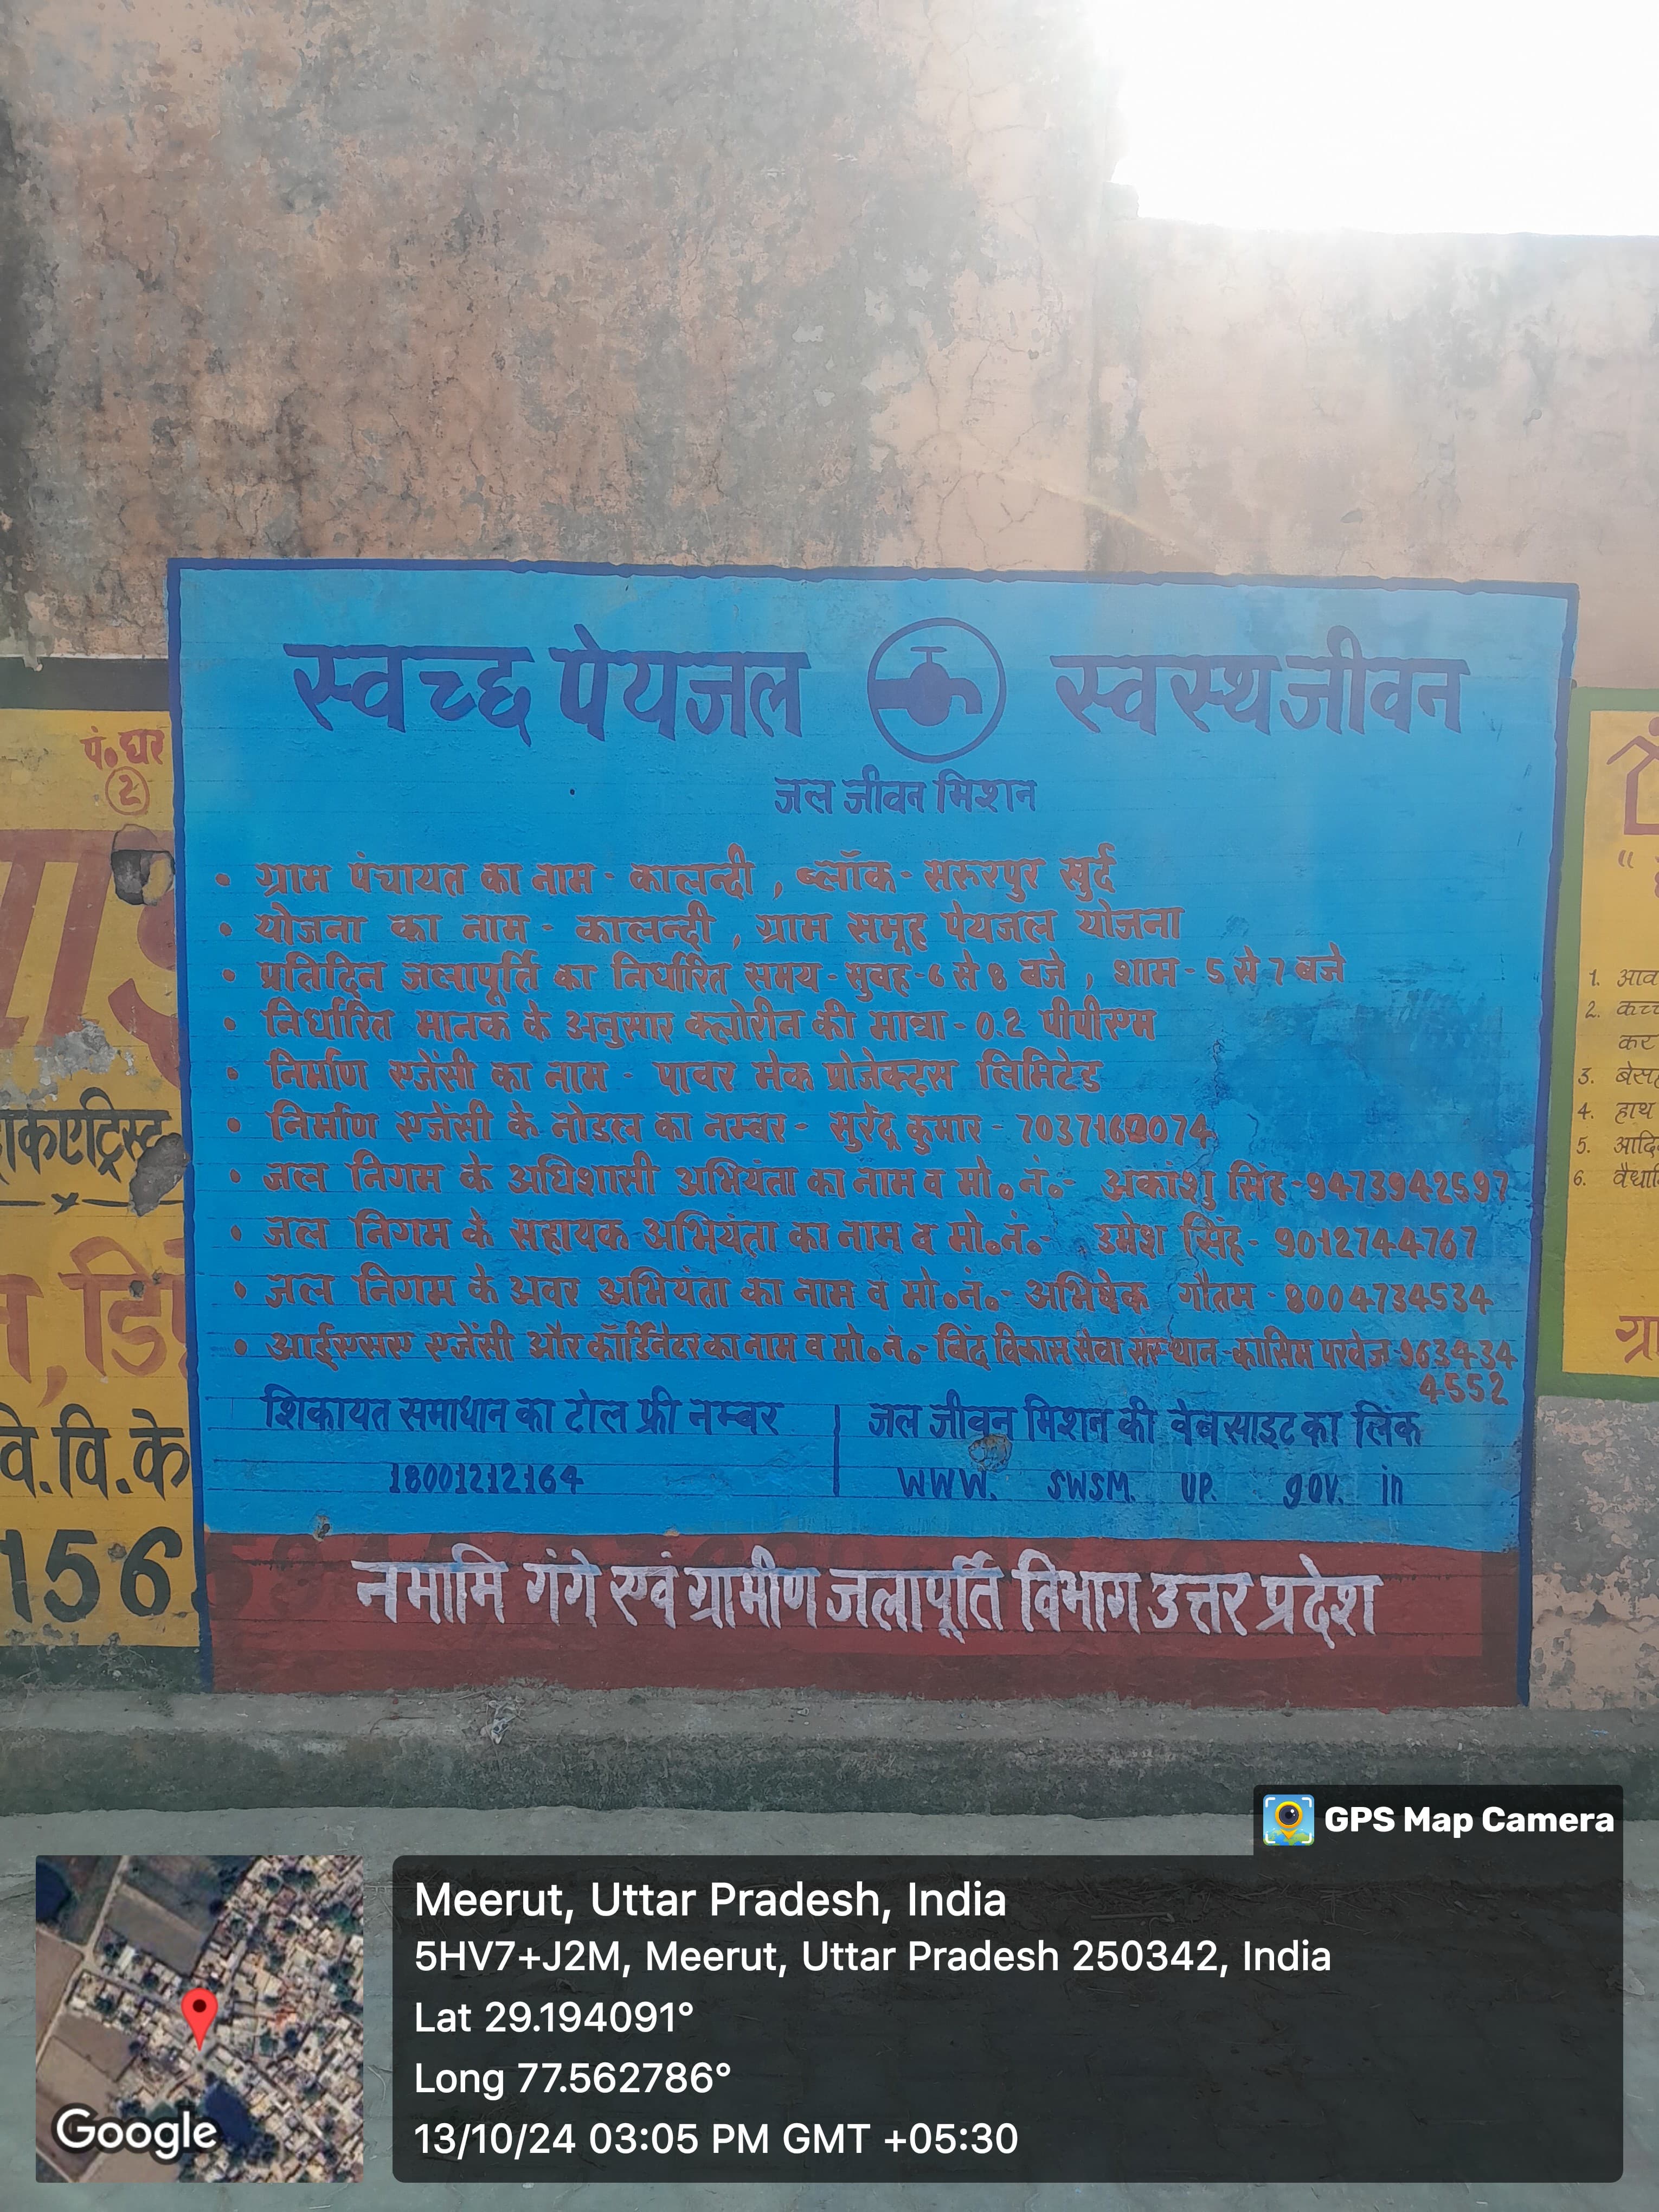 स्वच्छ पेयजल स्वस्थ जीवन
जल जीवन मिशन
• ग्राम पंचायत का नाम - कालन्दी , ब्लॉक - सरूरपुर खुर्द
• योजना का नाम - कालन्दी , ग्राम समूह पेयजल योजना
• प्रतिदिन जलापूर्ति का निर्धारित समय - सुबह - 6 से 8 बजे , शाम - 5 से 7 बजे
• निर्धारित मानक के अनुसार क्लोरीन की मात्रा - 0.2 पीपीएम
• निर्माण एजेंसी का नाम - पावर मेक प्रोजेक्ट्स लिमिटेड
• निर्माण एजेंसी के नोडल का नम्बर - सुरेंद्र कुमार -
• जल निगम के अधिशासी अभियंता का नाम व मो॰ नं॰ - अकांशु सिंह - 9473942597
• जल निगम के सहायक अभियंता का नाम व मो॰ नं॰ - उमेश सिंह - 9012744767
• जल निगम के अवर अभियंता का नाम व मो॰ नं॰ - अभिषेक गौतम - 8004734534
• आईएसए एजेंसी और कॉर्डिनेटर का नाम व मो॰ नं॰ - बिंद विकास सेवा संस्थान - कासिम परवेज - 963434
4552
शिकायत समाधान का टोल फ्री नम्बर
18001212164
जल जीवन मिशन की वेबसाइट का लिंक
WWW. SWSM. UP. gov. in
नमामि गंगे एवं ग्रामीण जलापूर्ति विभाग उत्तर प्रदेश
पं॰ घर
2
वि.वि.के
156
1. आव
2. कच्च
कर
3. बेसह
4. हाथ
5. आदि
6. वैधानि
ग्रा
GPS Map Camera
Meerut, Uttar Pradesh, India
5HV7+J2M, Meerut, Uttar Pradesh 250342, India
Lat 29.194091°
Long 77.562786°
13/10/24 03:05 PM GMT +05:30
Google